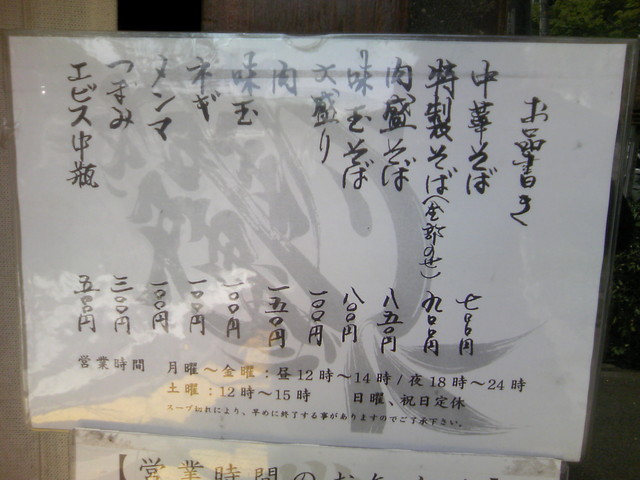 お品書き
中華そば 七〇〇円
特製そば(全部のせ) 九〇〇円
肉盛そば 八五〇円
味玉そば 八〇〇円
大盛り 一〇〇円
肉 一五〇円
味玉 一〇〇円
ネギ 一〇〇円
メンマ 一〇〇円
つまみ 三〇〇円
エビス中瓶 五〇〇円
営業時間 月曜〜金曜:昼12時〜14時/夜18時〜24時
土曜:12時〜15時 日曜、祝日定休
スープ切れにより、早めに終了する事がありますのでご了承下さい。
【営業時間のお